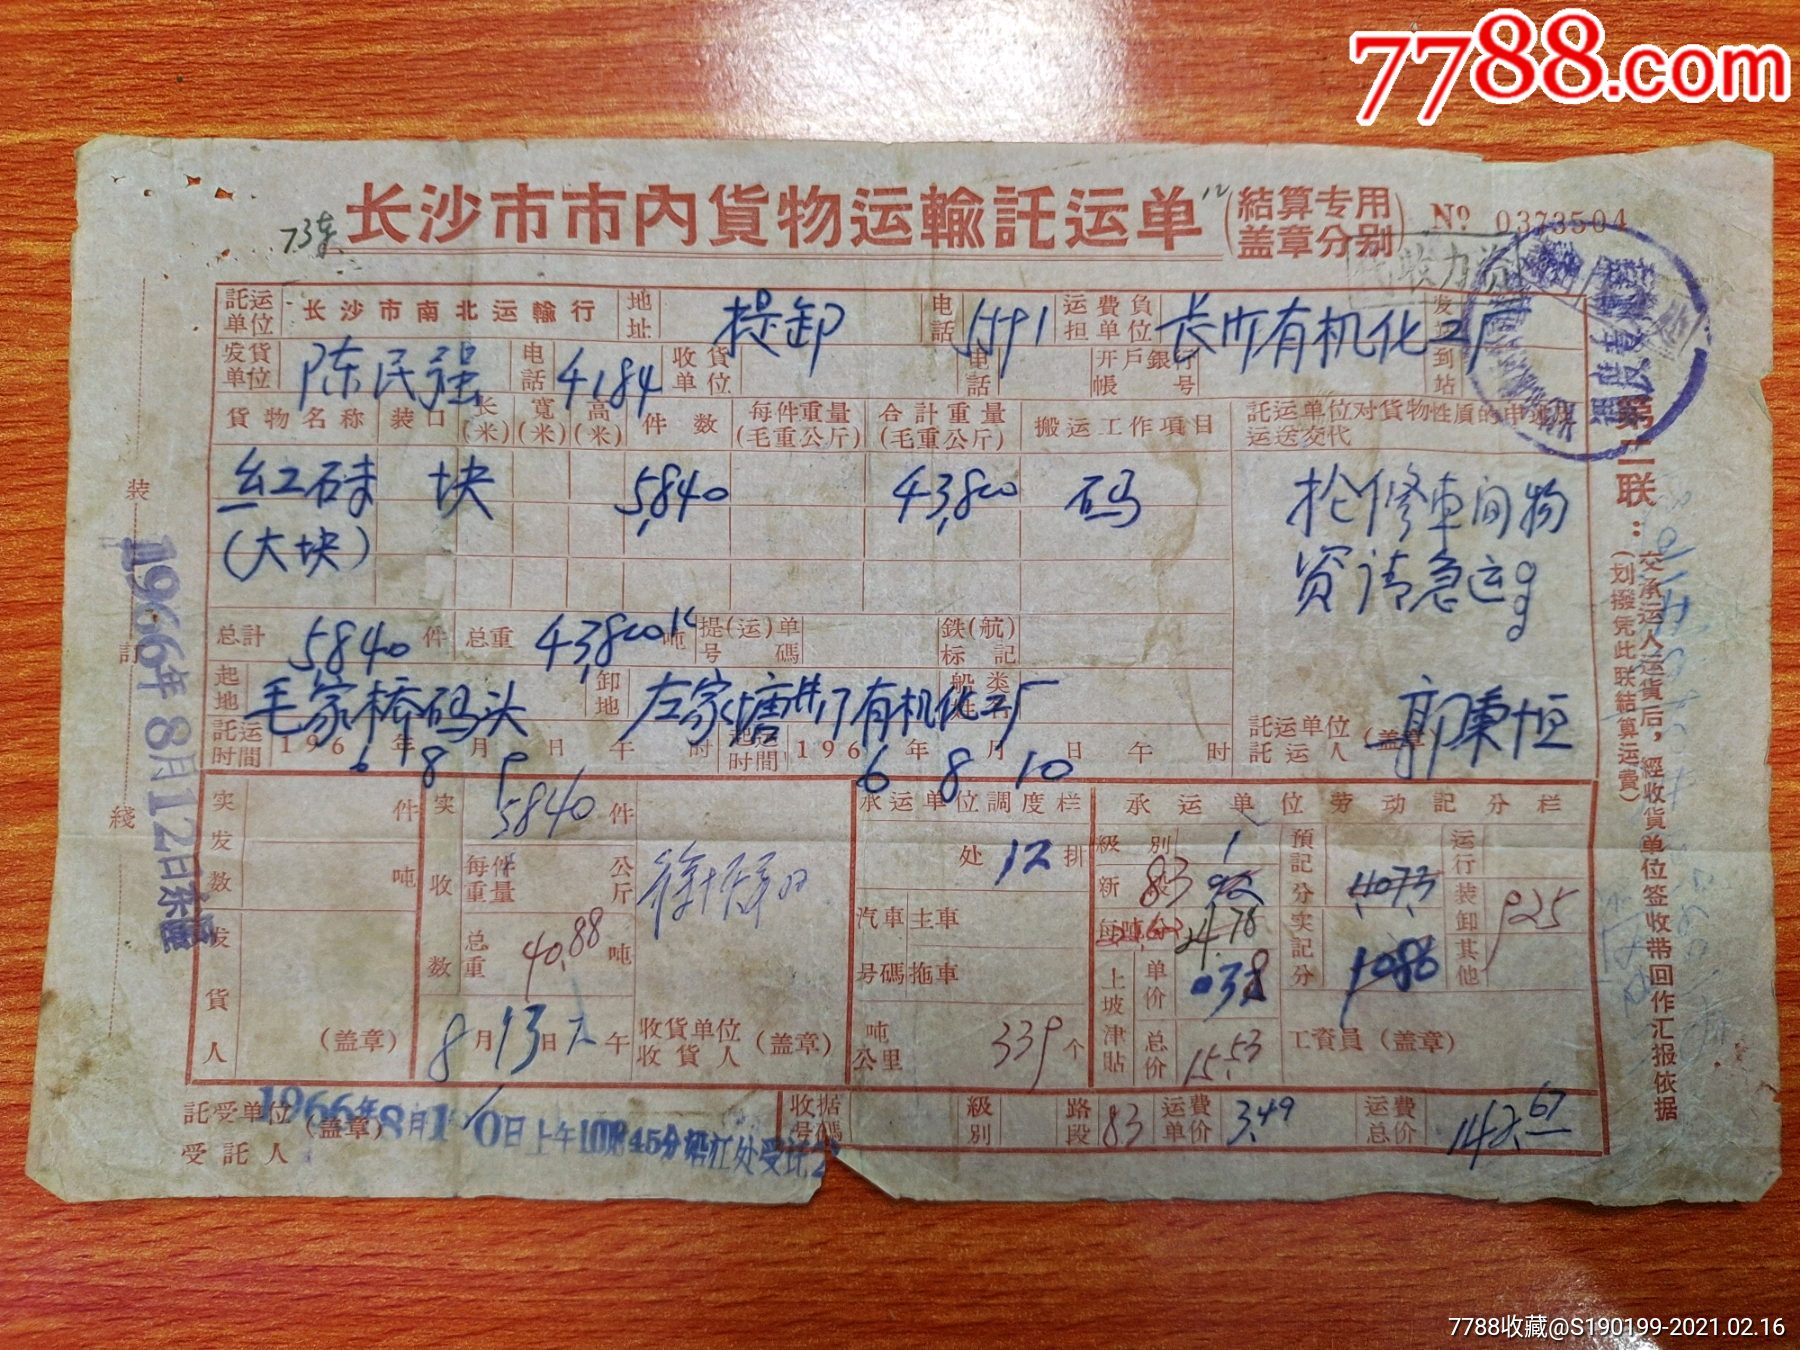 7788.com
长沙市市內貨物运輸託运单
(結算专用
盖章分别)
№ 0373504
託运单位 长沙市南北运輸行 地址 提卸 电話 运費負担单位 长沙有机化工厂 发站
发貨单位 陈民强 电話 4184 收貨单位 电話 开戶銀行帳号 到站
貨物名称 装口 长(米) 寬(米) 高(米) 件数 每件重量(毛重公斤) 合計重量(毛重公斤) 搬运工作項目 託运单位对貨物性質的申述及运送交代
红砖 块 5840 43,800 码 抢修車间物
(大块) 资请急运
总計 5840 件 总重 43,800 吨 提(运)单号碼 鉄(航)标記
起地 毛家桥码头 卸地 左家塘 有机化工厂 船类
託运时間 1966年8月9日午时 起运时間 1966年8月10日午时 託运单位託运人(盖章) 郭秉恒
实发数 件 吨
实收数 5840 件
每件重量 公斤
总重 40.88 吨
发貨人 (盖章)
8月13日下午
收貨单位
收貨人 (盖章)
承运单位調度栏
处 12 排
汽車号碼 主車 拖車
吨公里 339 个
承运单位劳动記分栏
級別 1 預記分 4073 运行
新 83 装卸 925
每吨分 24.78 实記分 1086 其他
上坡津貼 单价 038
总价 15.53 工資員(盖章)
託受单位(盖章)
受託人
收据号碼 級別 路段 83 运費单价 3.49 运費总价 142.67
1966年8月10日上午10时45分船江处受託
装
訂
綫
1966年8月12日
第二联：交承运人运貨后，經收貨单位签收带回作汇报依据
(划撥凭此联結算运費)
7788收藏@S190199-2021.02.16